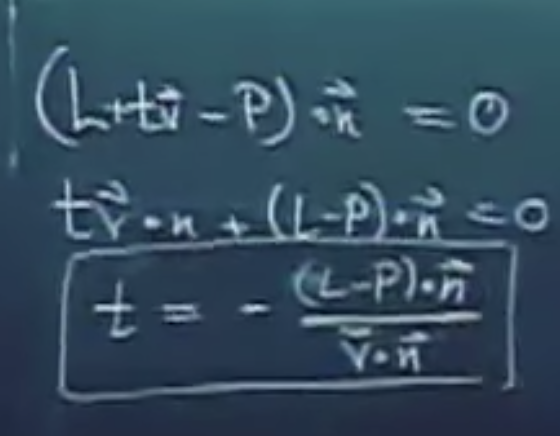 (L+tv⃗ - P)·n⃗ = 0
tv⃗·n + (L-P)·n⃗ = 0
t = - (L-P)·n⃗ / v⃗·n⃗